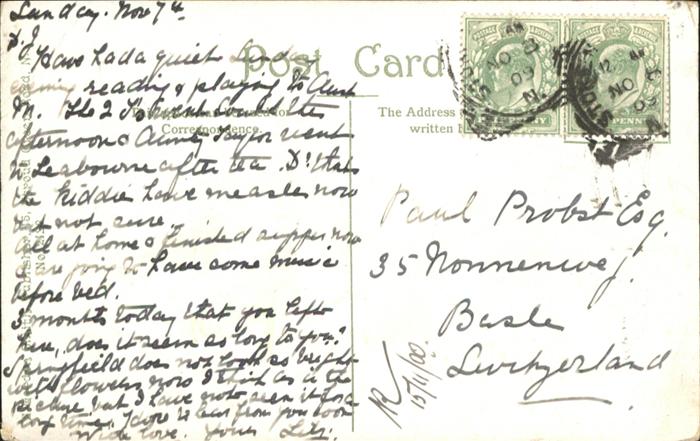 Sunday. Nov 7th.
D. J
Have had a quiet Sunday
reading & playing to Aunt
M. The 2 went out the
afternoon & Aunty went
to Seabourne after tea. Dr. thinks
the kiddie have measles now
but not sure.
All at home & finished supper now
are going to have some music
before bed.
3 months today that you left
here, does it seem so long to you?
Springfield does not look so bright
with flowers now I think as in the
picture but I have not seen it for a
long time. I hope to hear from you soon
With love. Yours
Post Card
Correspondence.
The Address
written
PENNY
PENNY
NO 8
09
NO 8
09
Paul Probst Esq.
35 Nonnenweg
Basle
Switzerland
R 15/11/09.